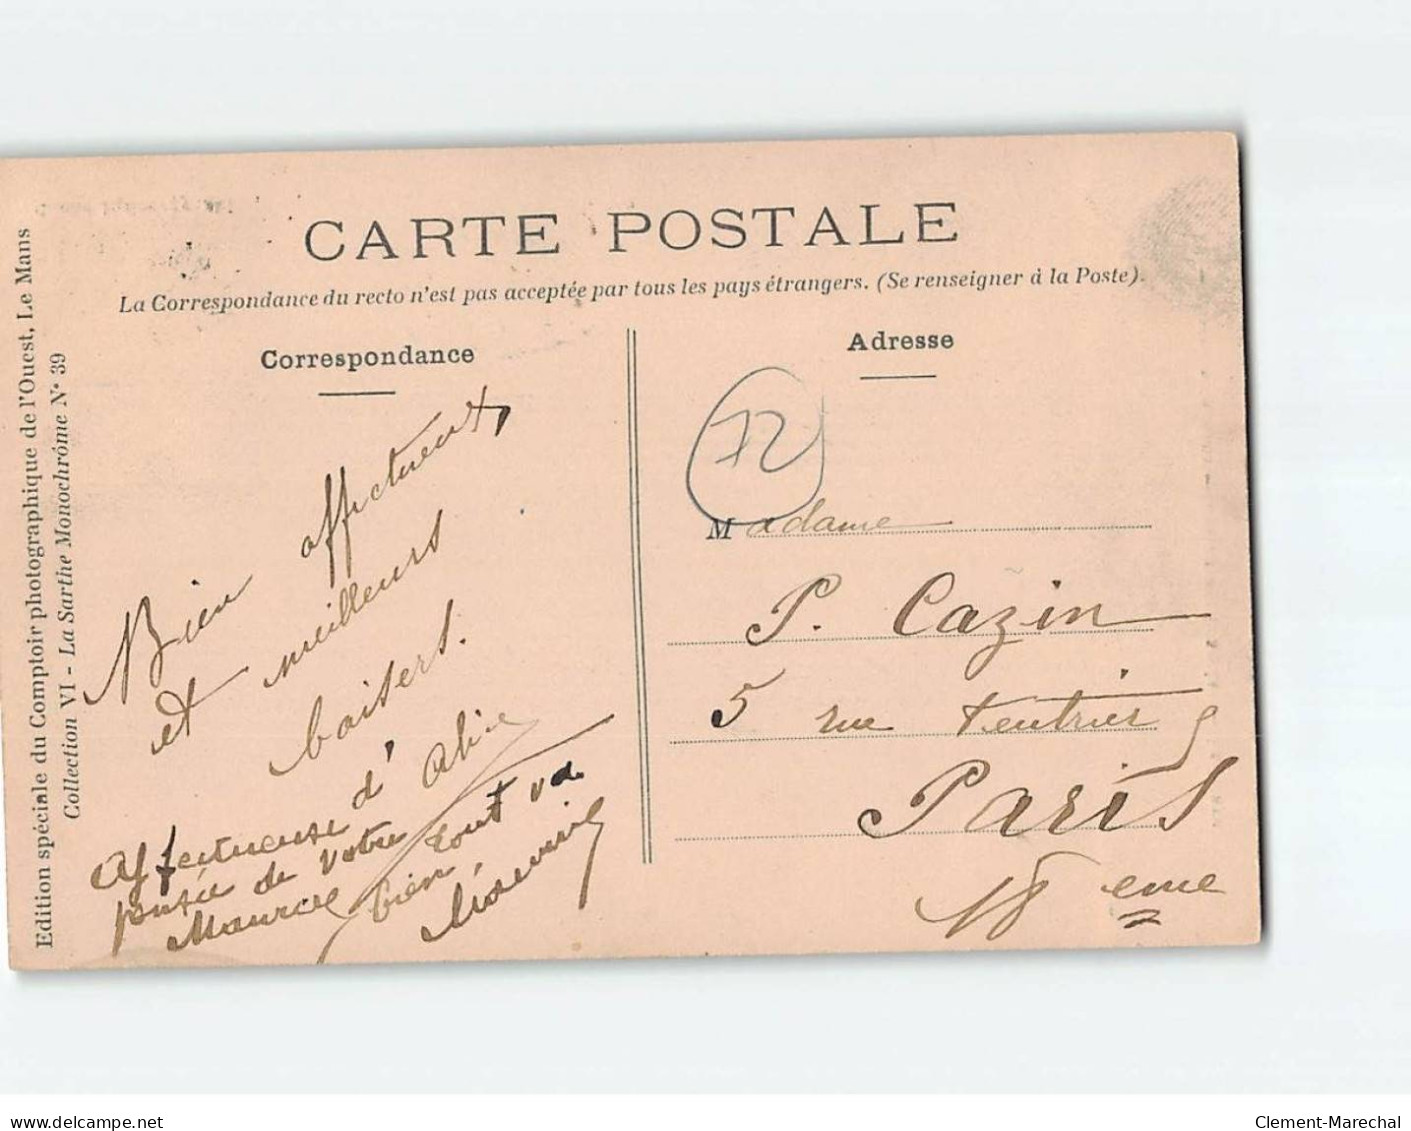 CARTE POSTALE
La Correspondance du recto n'est pas acceptée par tous les pays étrangers. (Se renseigner à la Poste).
Correspondance
Adresse
Edition spéciale du Comptoir photographique de l'Ouest, Le Mans
Collection VI - La Sarthe Monochrôme N° 39
Bien affectueux
et meilleurs
baisers.
d'
Affectueuse
pensée de votre
Maurice bien tout va
72
Madame
P. Cazin
5 rue
Paris
18 eme
delcampe.net
Clement-Marechal